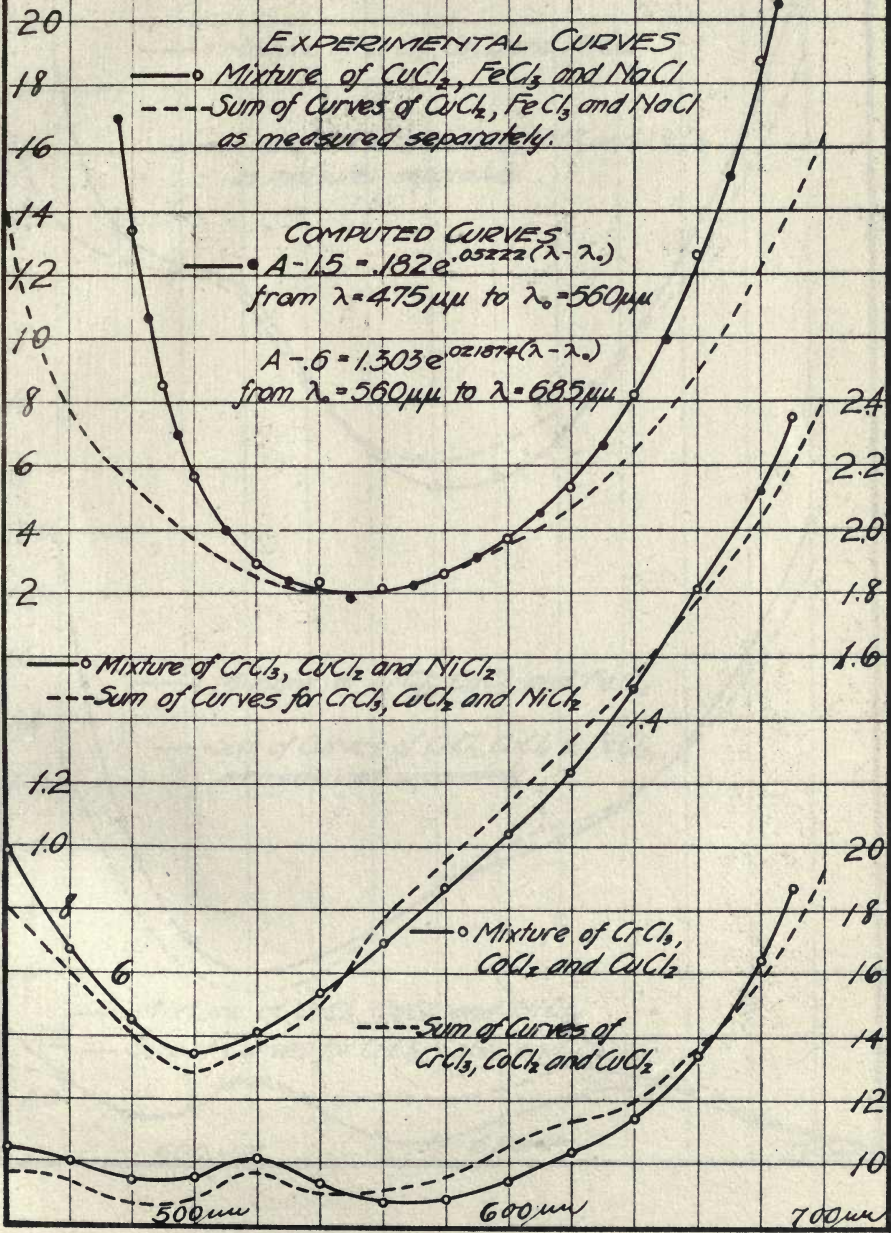 20
EXPERIMENTAL CURVES
Mixture of CuCl₂, FeCl₃ and NaCl
18
Sum of Curves of CuCl₂, FeCl₃ and NaCl
as measured separately.
16
14
COMPUTED CURVES
A-1.5 = .182e^.05222(λ-λ₀)
12
from λ=475μμ to λ₀=560μμ
10
A-.6 = 1.303e^.021874(λ-λ₀)
from λ₀=560μμ to λ=685μμ
8
2.4
6
2.2
4
2.0
2
1.8
Mixture of CrCl₃, CuCl₂ and NiCl₂
1.6
Sum of Curves for CrCl₃, CuCl₂ and NiCl₂
1.4
1.2
1.0
20
.8
18
Mixture of CrCl₃,
CoCl₂ and CuCl₂
.6
16
Sum of Curves of
14
CrCl₃, CoCl₂ and CuCl₂
12
10
500μμ
600μμ
700μμ